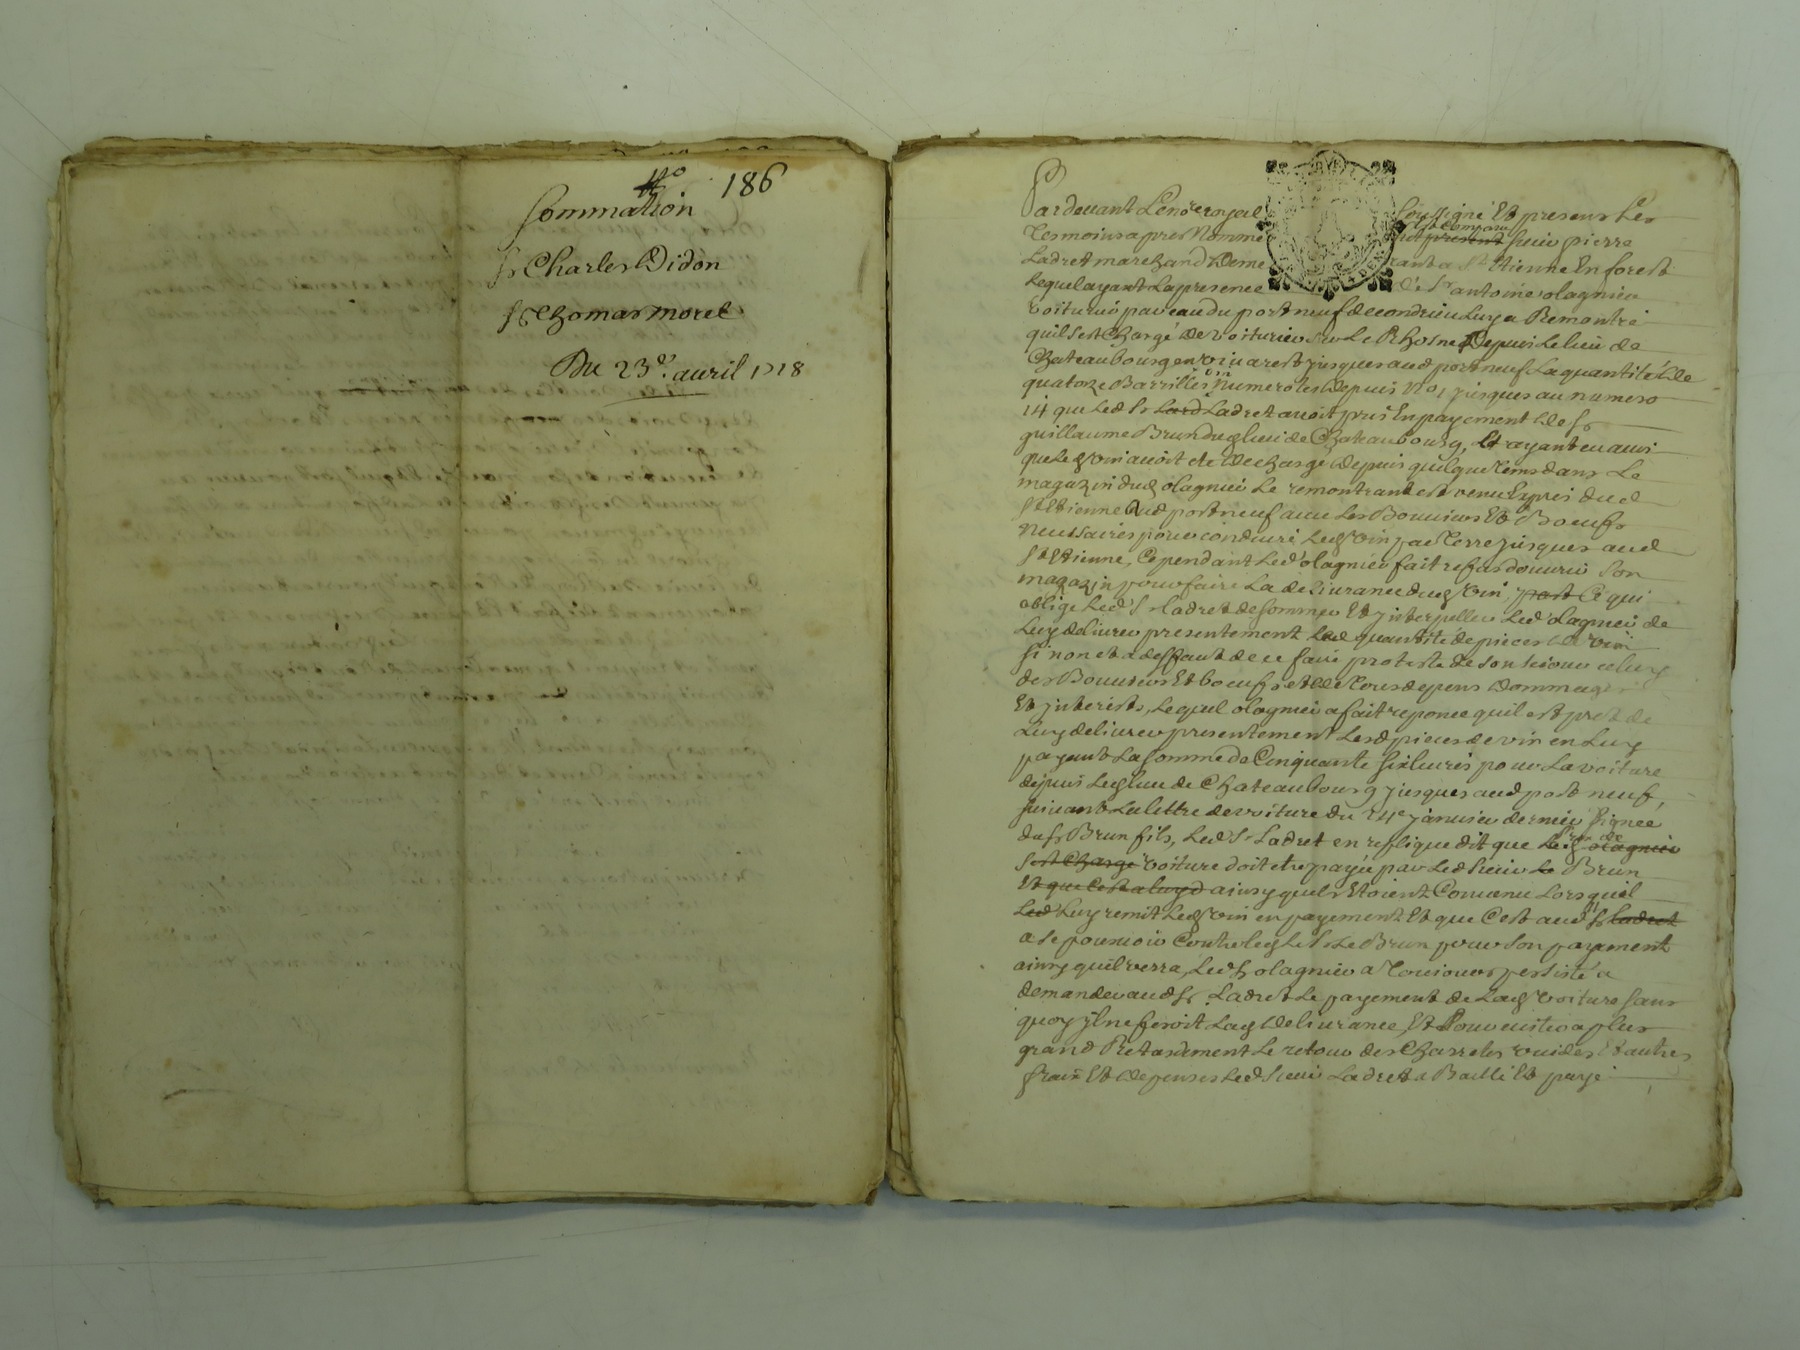 no 186
Sommation
Sr Charles Didon
Sr Thomas morel
Du 23e. auril 1718
Pardeuant Le no.re royal soussigné Et presens Les
Tesmoins apres Nommé Est Comparu sieur pierre
Ladret marchand Demeurant a St Etienne En forest
Lequel ayant La presence de Sr antoine olagnier
voiturier par eau du port neuf de condrieu Luy a Remontré
quil s'est Chargé de voiturier sur Le Rhosne Depuis Le lieu de
Chateaubourg en viuarest jusques aud port neuf La quantité de
quatorze Barrilles vin Numerotes depuis No. 1 jusques au numero
14 que Led Sr Lard Ladret auoit pris En payement de Sr
guillaume Brun dud lieu de Chateaubourg, Et ayant eu auis
que Led vin auoit ete dechargé depuis quelque tems dans Le
magazin dud olagnier Le remontrant est venu Expres dud
St Etienne aud port neuf auec Les Bouuiers Et Boeufs
necessaires pour conduire Led vin par terre jusques aud
St Etienne, Cependant Led olagnier fait refus d'ouurir son
magazin pour faire La deliurance dud vin, Ce qui
oblige Led Sr Ladret de sommer Et jnterpeller Led olagnier de
Luy deliurer presentement Lad quantité de pieces de vin
si non et a deffaut de ce faire proteste de son seiour celuy
des Bouuiers Et boeufs et de tous depens dommages
Et jnterests, Lequel olagnier a fait reponce quil est prest de
Luy deliurer presentement Lesd pieces de vin en Luy
payant La somme de Cinquante six liures pour La voiture
depuis Led lieu de Chateaubourg jusques aud port neuf,
suiuant La lettre de voiture du 24e januier dernier signée
dud Sr Brun fils, Led Sr Ladret en replique dit que Le prix de lad olagnier
s'est Chargé voiture doit etre payée par Led sieur Le Brun
Et que C'est a luy d ainsy quils Etoient Conuenu Lorsquil
Led Luy remit Led vin en payement Et que C'est aud Sr Ladret
a se pouruoir Contre Led Sr Le Brun pour son payement
ainsy quil verra, Led Sr olagnier a toujours persisté a
demander aud Sr Ladret Le payement de Lad voiture sans
quoy jl ne feroit Lad deliurance, Et Pour euiter a plus
grand Retardement Le retour des Charretes vuides Et autres
fraix Et depenses Led sieur Ladret a Baillé Et payé